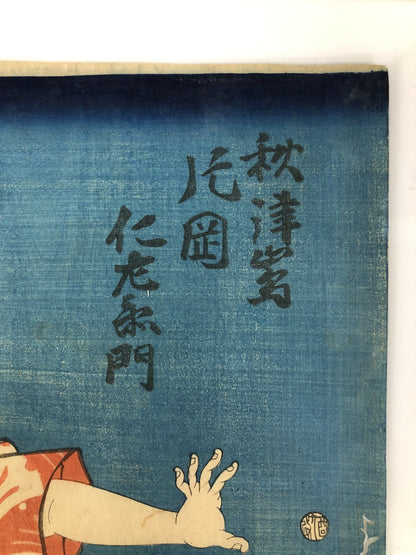 秋津嶌
片岡
仁左衛門